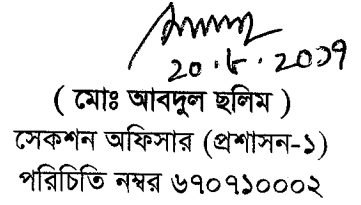 ২০.৮.২০১৭
( মোঃ আবদুল ছলিম )
সেকশন অফিসার (প্রশাসন-১)
পরিচিতি নম্বর ৬৭০৭১০০০২